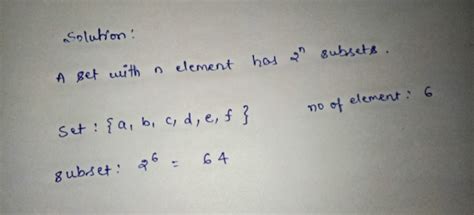 Solution:
A set with n element has 2ⁿ subsets.
Set : {a, b, c, d, e, f }    no of element : 6
subset : 2⁶ = 64